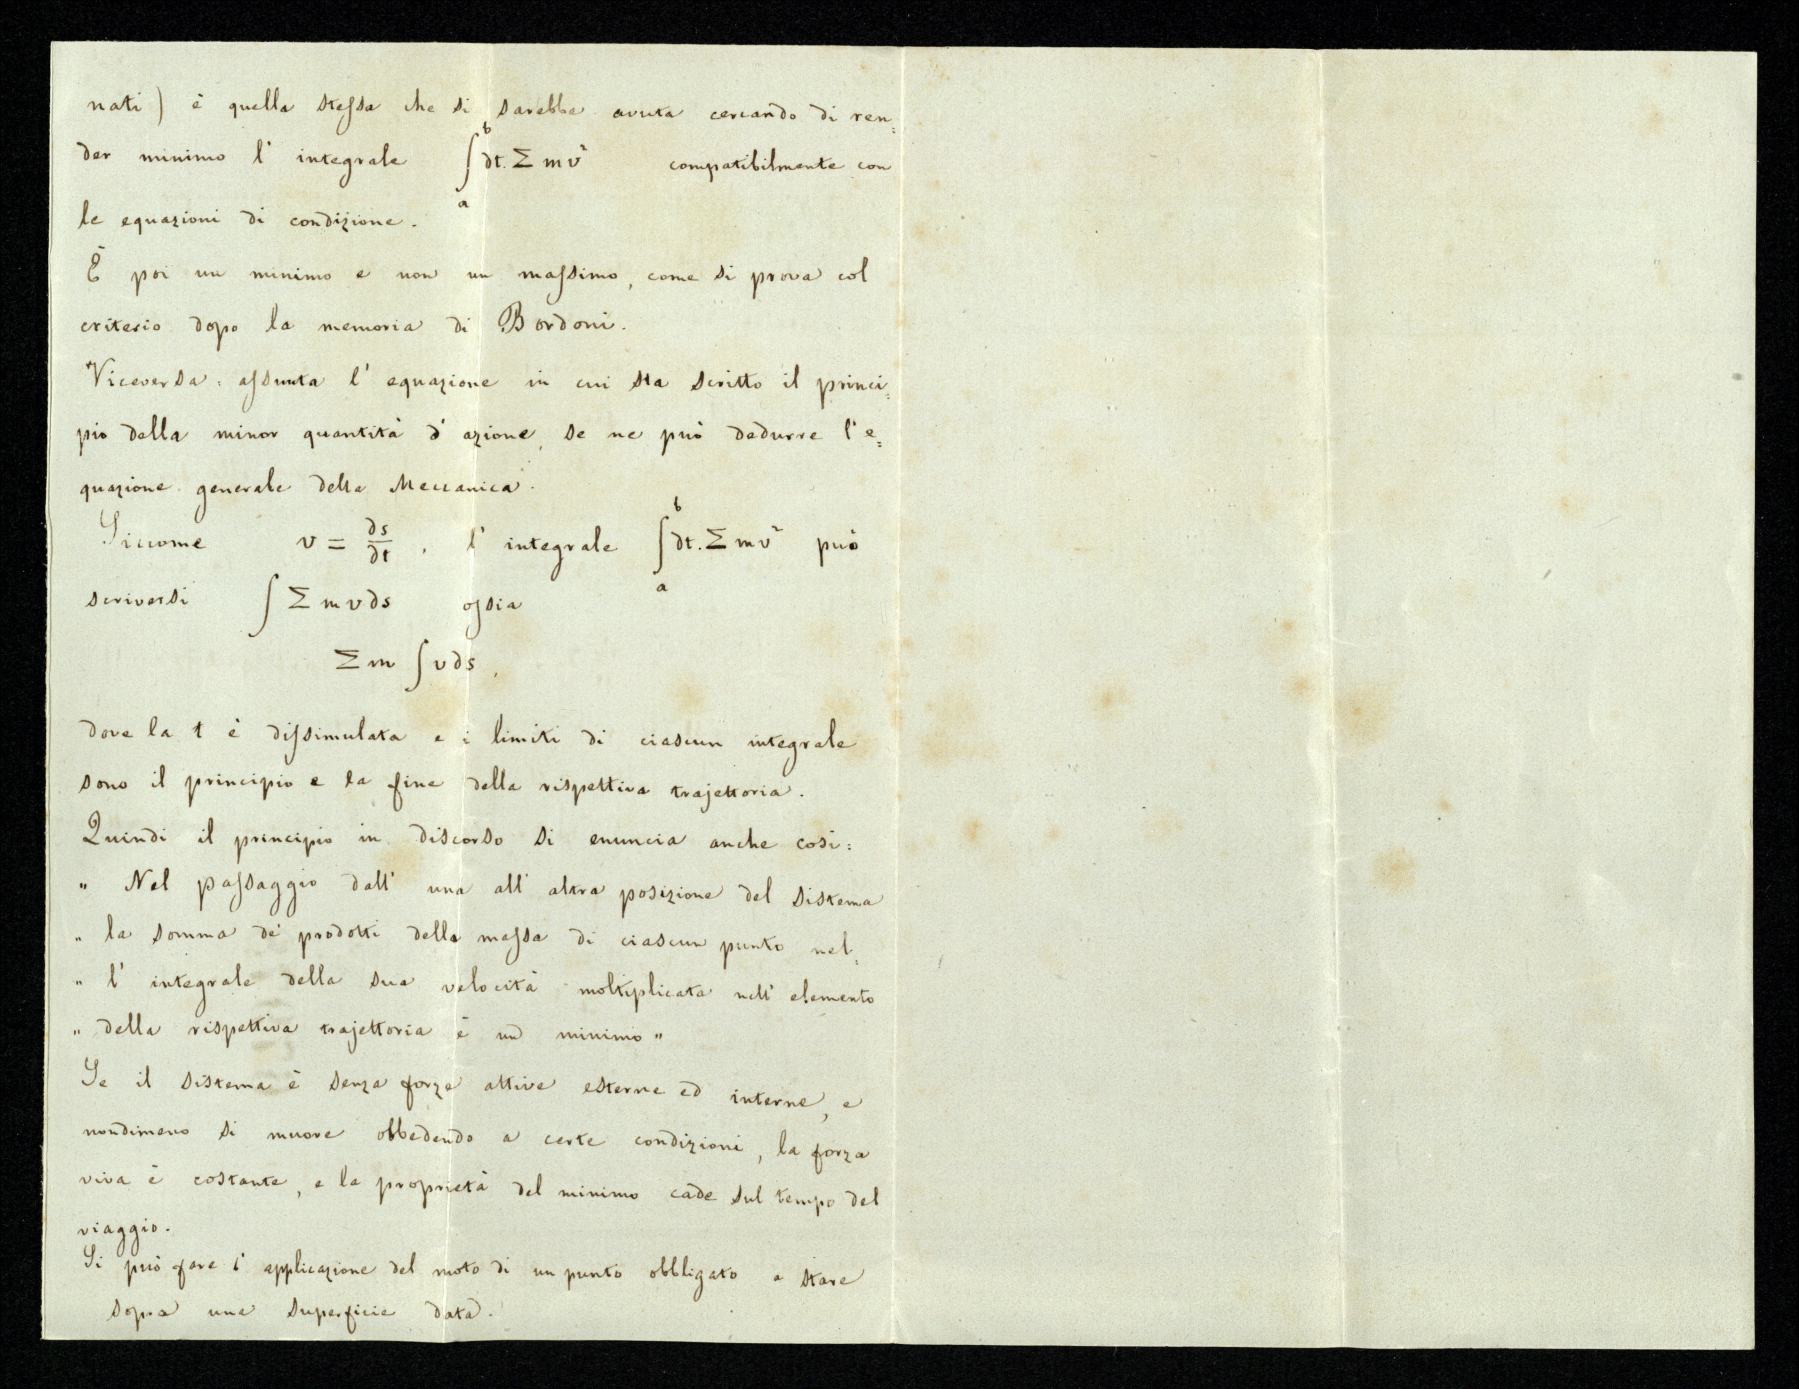 nati) è quella stessa che si sarebbe avuta cercando di ren=
der minimo l' integrale ∫ₐᵇ dt. Σ mv² compatibilmente con
le equazioni di condizione.
È poi un minimo e non un massimo, come si prova col
criterio dopo la memoria di Bordoni.
Viceversa: assunta l' equazione in cui sta scritto il princi=
pio della minor quantità d' azione, se ne può dedurre l' e=
quazione generale della Meccanica.
Siccome v = ∂s/∂t, l' integrale ∫ₐᵇ dt. Σ mv² può
scriversi ∫ Σ m v ds ossia
Σ m ∫ v ds,
dove la t è dissimulata e i limiti di ciascun integrale
sono il principio e la fine della rispettiva trajettoria.
Quindi il principio in discorso si enuncia anche così:
" Nel passaggio dall' una all' altra posizione del sistema
" la somma de' prodotti della massa di ciascun punto nel=
" l' integrale della sua velocità moltiplicata nell' elemento
" della rispettiva trajettoria è un minimo "
Se il sistema è senza forze attive esterne ed interne, e
nondimeno si muove obbedendo a certe condizioni, la forza
viva è costante, e la proprietà del minimo cade sul tempo del
viaggio.
Si può fare l' applicazione del moto di un punto obbligato a stare
sopra una superficie data.